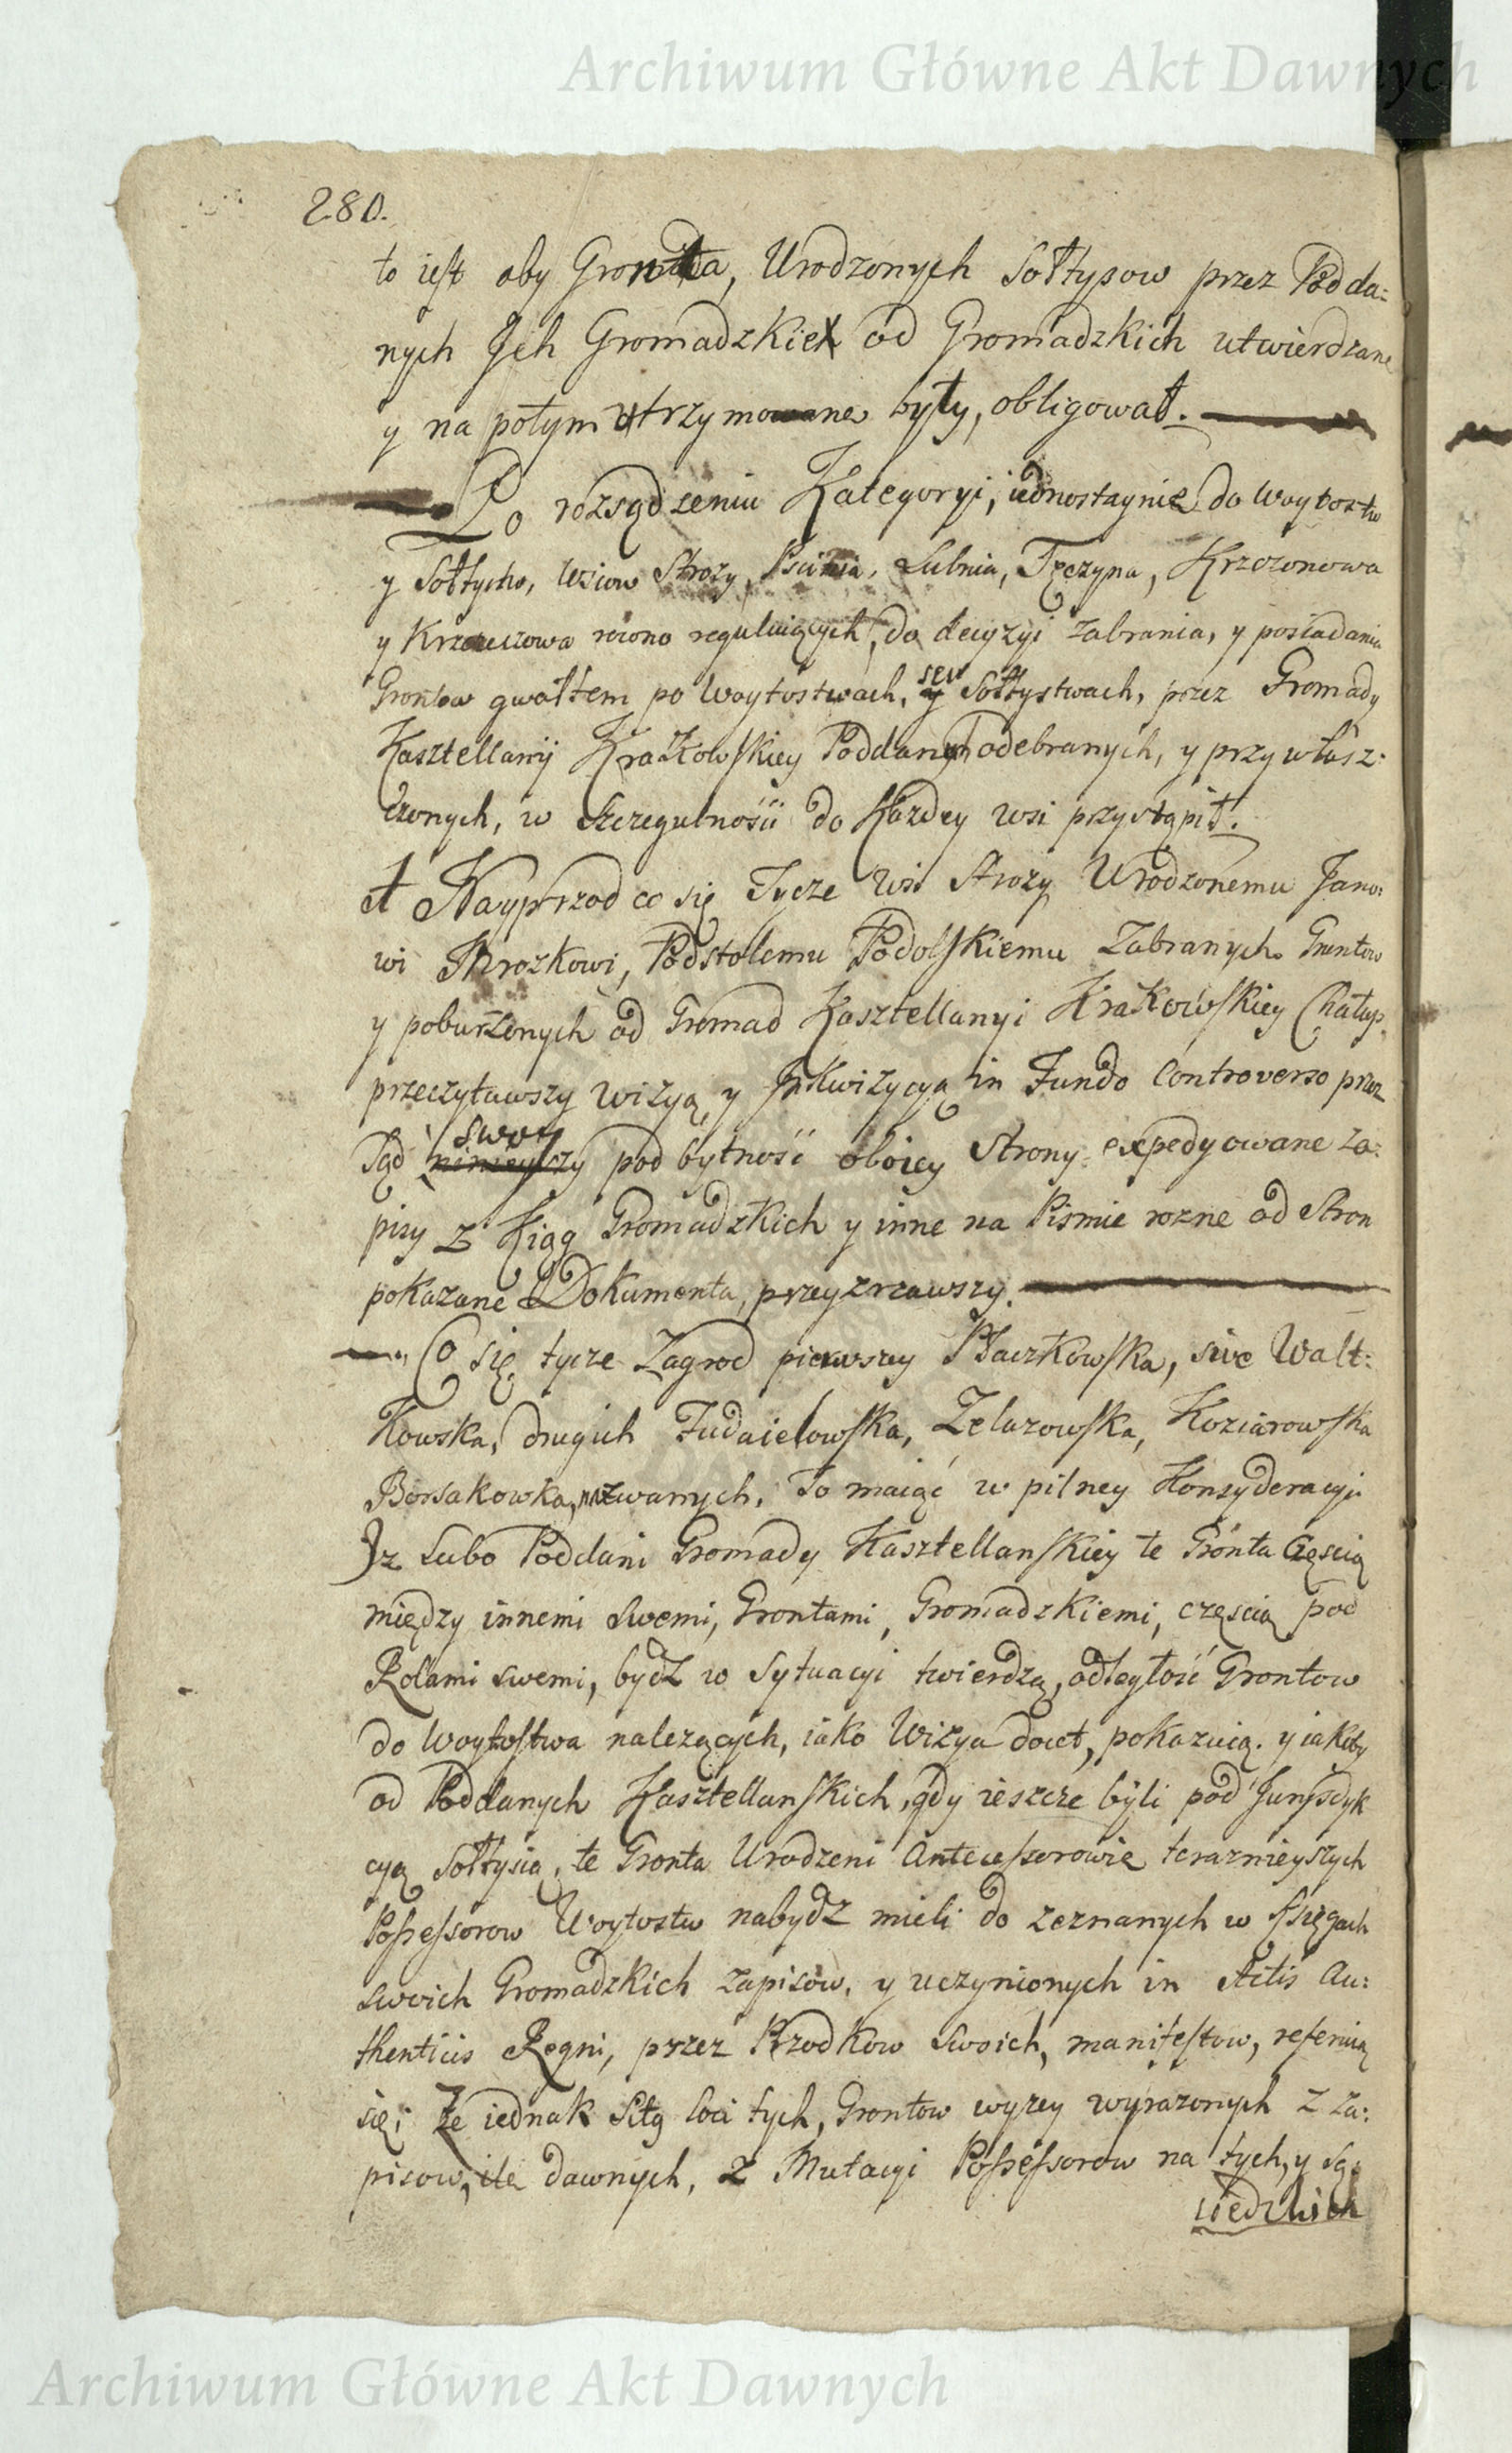 Archiwum Główne Akt Dawnych
280.
to iest aby Gronta, Urodzonych Sołtysow przez Podda=
nych Jch Gromadzkich od Gromadzkich utwierdzane
y na potym utrzymowane były, obligował.
Po rozsądzeniu Kategoryi, iednostaynie do Woytostw
y Sołtystw, Wsiow Stroży, Pcimia, Lubnia, Tęczyna, Krzczonowa
y Krzeczowa rowno reguluiących, do decyzyi zabrania, y posiadania
Grontow gwałtem po Woytostwach, seu Sołtystwach, przez Gromady
Kasztellanij Krakowskiey Poddanych odebranych, y przywłasz=
czonych, w szczegulności do Każdey wsi przystąpił.
A Nayprzod co się Tycze Wsi Stroży Urodzonemu Jano=
wi Mrozkowi, Podstolemu Podolskiemu Zabranych Gruntow
y poburzonych od Gromad Kasztellanyi Krakowskiey Chałup,
przeczytawszy Wizyą, y Jnkwizycyą in Fundo Controverso przez
Sąd swoy pod bytność oboiey Strony expedyowane za=
pisy z Xiąg Gromadzkich y inne na Pismie rozne od Stron
pokazane Dokumenta, przeyzrzawszy.
Co się tycze Zagrod pierwszey Płaczkowska, sive Walt=
kowska, drugich Fudaielowska, Zelazowska, Koziarowska
Borsakowka, nazwanych. To maiąc w pilney Konsyderacyi
Jz Lubo Poddani Gromady Kasztellanskiey te Gronta Częscią
między innemi Swemi, Grontami, Gromadzkiemi, częscią pod
Rolami swemi, bydź w Sytuacyi twierdzą, odległość Grontow
do Woytostwa nalezących, iako Wizya docet, pokazuią. y iakoby
od Poddanych Kasztellanskich, gdy ieszcze byli pod Jurisdyk
cyą Sołtysią, te Gronta Urodzeni Antecessorowie teraznieyszych
Possessorow Woytostw nabydź mieli do zeznanych w Xsięgach
swoich Gromadzkich zapisow, y uczynionych in Actis Au=
thenticis Regni, przez Przodkow swoich, manifestow, referuią
się; Ze iednak Sitg loci tych, Grontow wyzey wyrazonych z Za=
pisow, ile dawnych, z Mutacyi Possessorow na tych, y Są=
siedzkich
Archiwum Główne Akt Dawnych